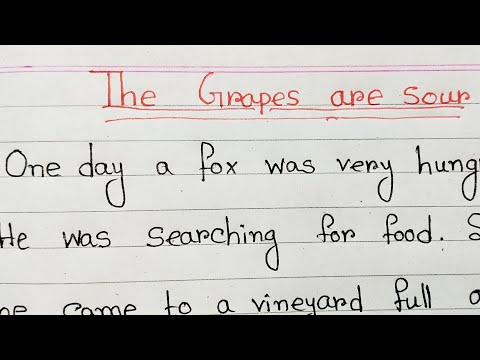 The Grapes are sour
One day a fox was very hung
He was searching for food. S
came to a vineyard full